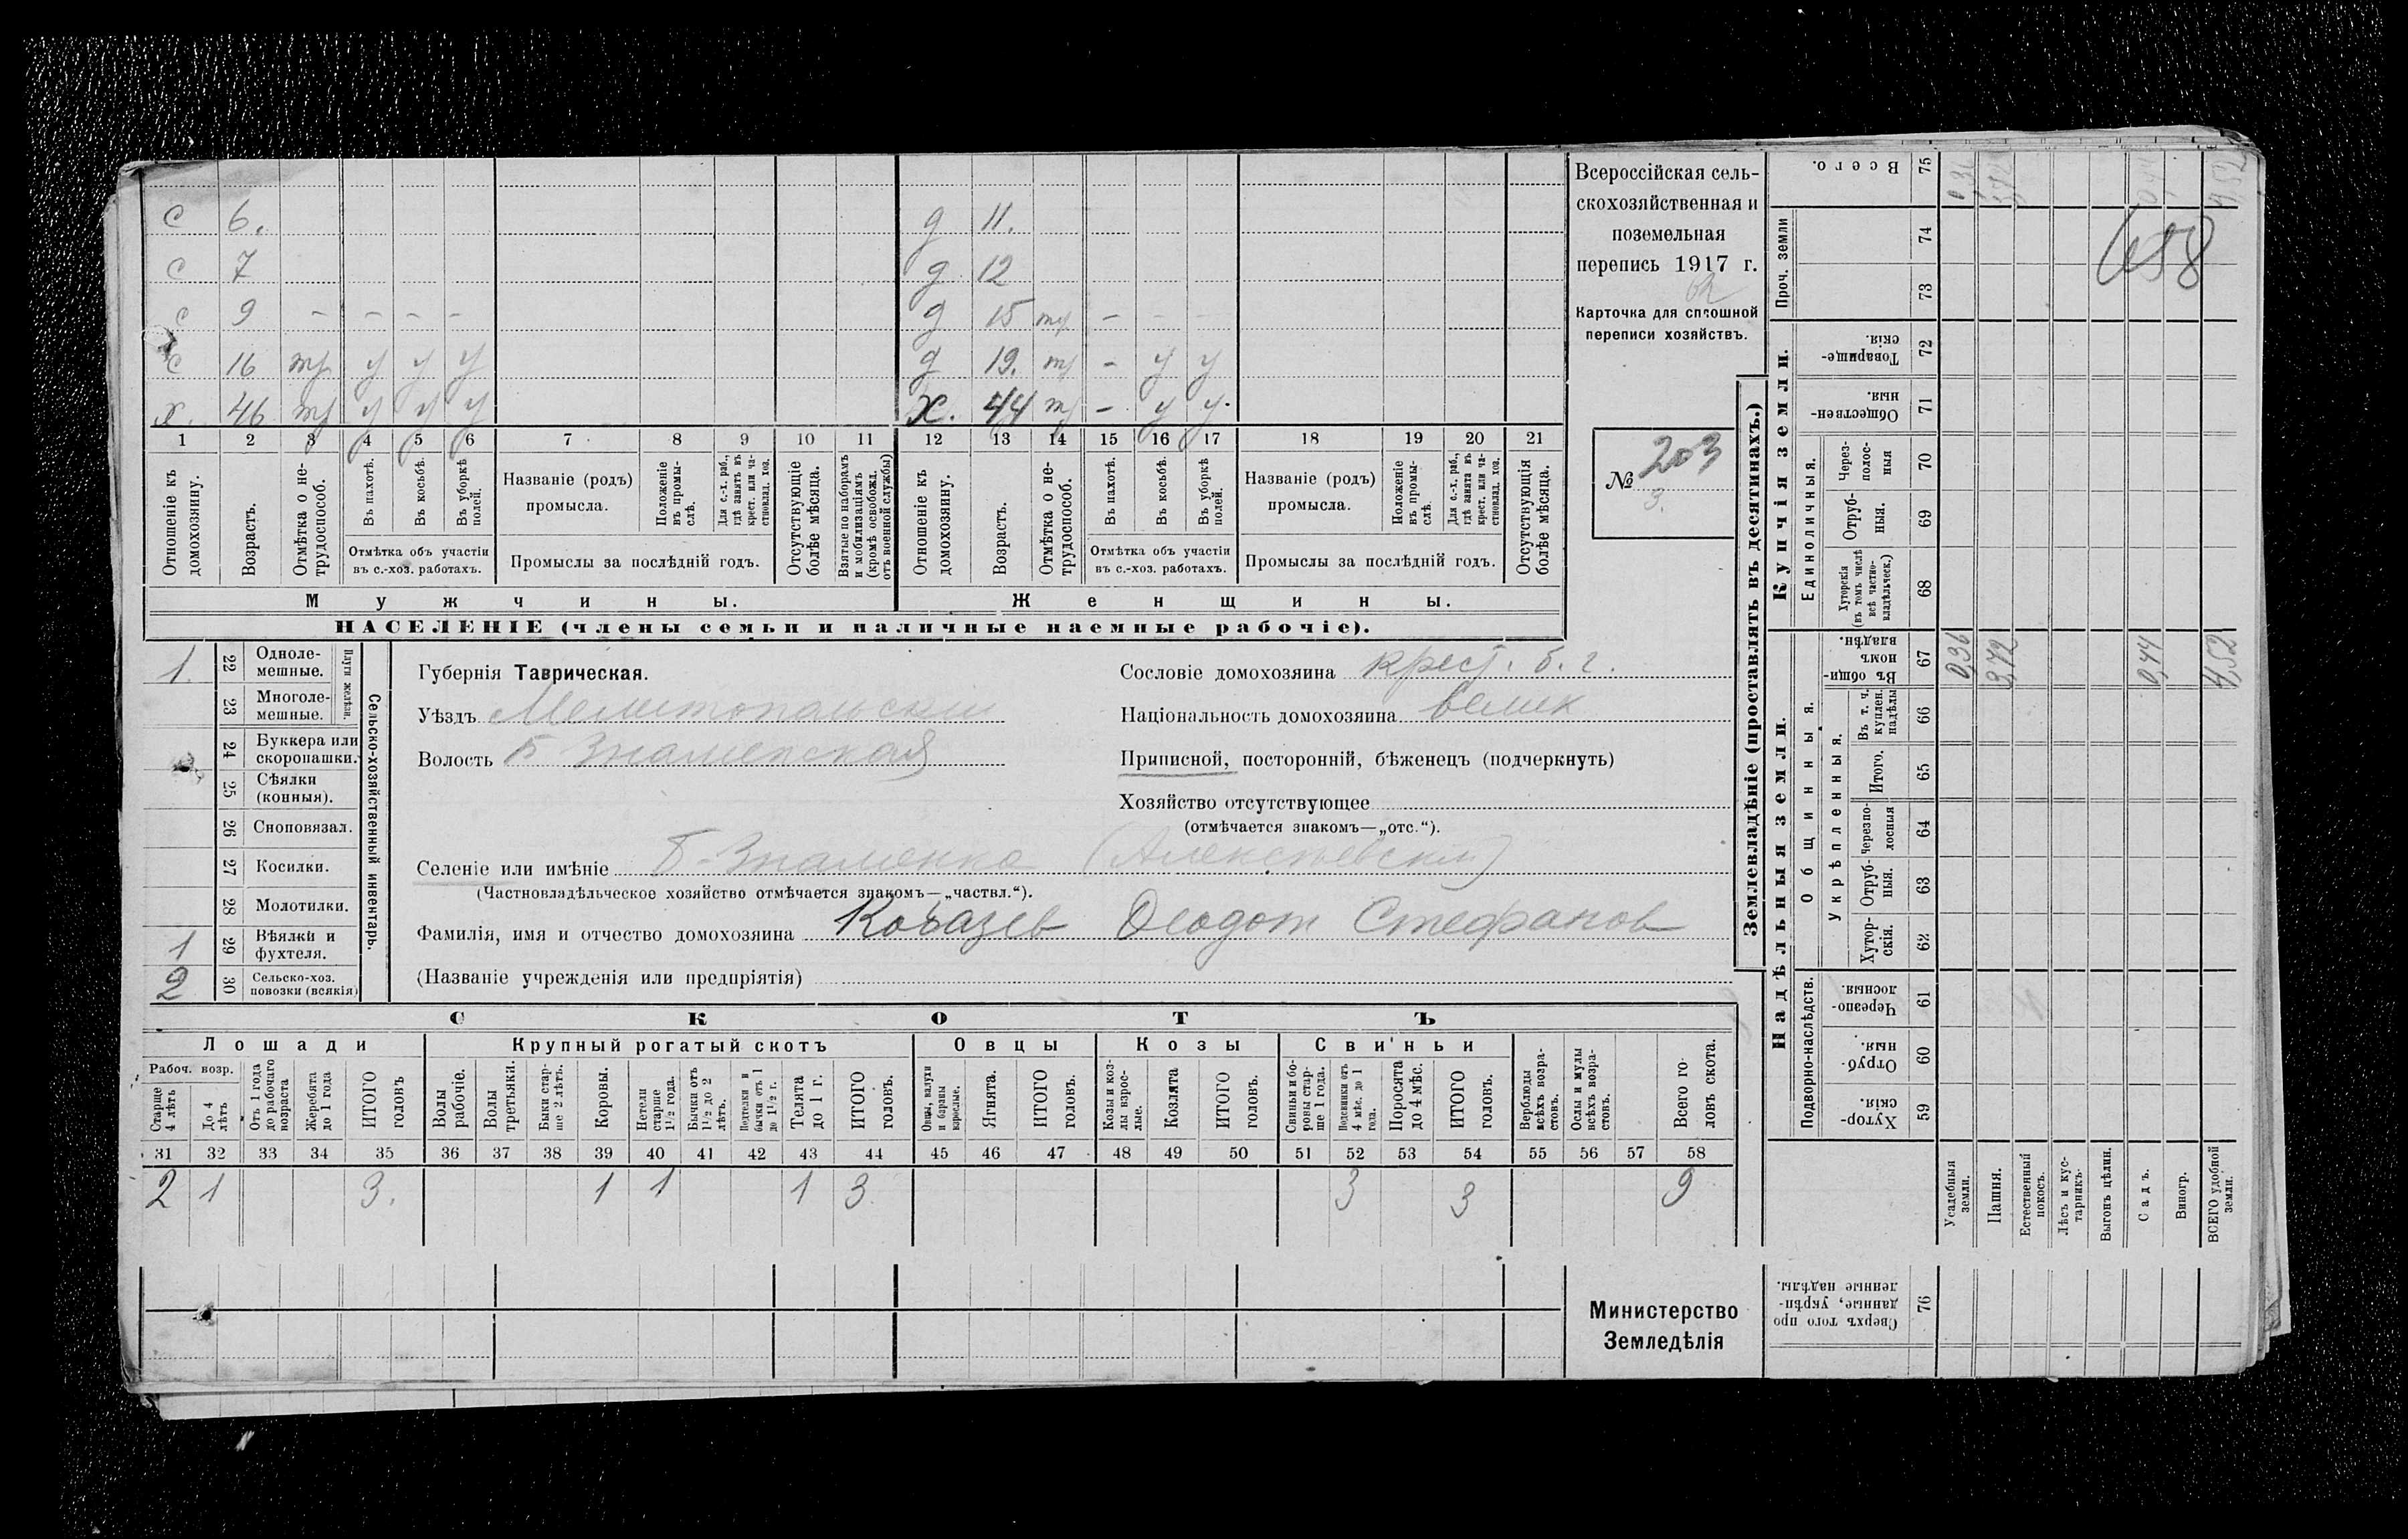 с 6. д 11.
с 7 д 12
с 9 – – – – д 15 тр –
с 16 тр у у у д 19. тр – у у
х. 46 тр у у у х. 44 тр – у у.
1 2 3 4 5 6 7 8 9 10 11 12 13 14 15 16 17 18 19 20 21
Отношеніе къ домохозяину.
Возрастъ.
Отмѣтка о нетрудоспособ.
Въ пахотѣ.
Въ косьбѣ.
Въ уборкѣ полей.
Отмѣтка объ участіи въ с.-хоз. работахъ.
Названіе (родъ) промысла.
Положеніе въ промыслѣ.
Для с.-х. раб., гдѣ занятъ въ крест. или частновлад. хоз.
Промыслы за послѣдній годъ.
Отсутствующіе болѣе мѣсяца.
Взятые по наборамъ и мобилизаціямъ (кромѣ освобожд. отъ военной службы)
Отношеніе къ домохозяину.
Возрастъ.
Отмѣтка о нетрудоспособ.
Въ пахотѣ.
Въ косьбѣ.
Въ уборкѣ полей.
Отмѣтка объ участіи въ с.-хоз. работахъ.
Названіе (родъ) промысла.
Положеніе въ промыслѣ.
Для с.-х. раб., гдѣ занята въ крест. или частновлад. хоз.
Промыслы за послѣдній годъ.
Отсутствующія болѣе мѣсяца.
Мужчины. Женщины.
НАСЕЛЕНІЕ (члены семьи и наличные наемные рабочіе).
Всероссійская сель-
скохозяйственная и
поземельная
перепись 1917 г.
Карточка для сплошной
переписи хозяйствъ.
№ 203
3.
1 22 Однолемешные.
23 Многолемешные.
Плуги желѣзн.
24 Буккера или скоропашки.
25 Сѣялки (конныя).
26 Сноповязал.
27 Косилки.
28 Молотилки.
1 29 Вѣялки и фухтеля.
2 30 Сельско-хоз. повозки (всякія)
Сельско-хозяйственный инвентарь.
Губернія Таврическая.
Уѣздъ Мелитопольскій
Волость Б Знаменская
Сословіе домохозяина крест. б. г.
Національность домохозяина велик
Приписной, посторонній, бѣженецъ (подчеркнуть)
Хозяйство отсутствующее
(отмѣчается знакомъ—„отс.“).
Селеніе или имѣніе Б-Знаменка (Алексѣевскій)
(Частновладѣльческое хозяйство отмѣчается знакомъ—„частвл.“).
Фамилія, имя и отчество домохозяина Кобазев Феодот Стефанов
(Названіе учрежденія или предпріятія)
СКОТЪ
Лошади Крупный рогатый скотъ Овцы Козы Свиньи
Рабоч. возр.
Старще 4 лѣтъ
До 4 лѣтъ
Отъ 1 года до рабочаго возраста
Жеребята до 1 года
ИТОГО головъ
Волы рабочіе.
Волы третьяки.
Быки старше 2 лѣтъ.
Коровы.
Нетели старше 1½ года.
Бычки отъ 1½ до 2 лѣтъ.
Нетелки и бычки отъ 1 до 1½ г.
Телята до 1 г.
ИТОГО головъ.
Овцы, валухи и бараны взрослые.
Ягнята.
ИТОГО головъ.
Козы и козлы взрослые.
Козлята
ИТОГО головъ.
Свиньи и бороны старше 1 года.
Подсвинки отъ 4 мѣс. до 1 года.
Поросята до 4 мѣс.
ИТОГО головъ.
Верблюды всѣхъ возрастовъ.
Ослы и мулы всѣхъ возрастовъ.
Всего головъ скота.
31 32 33 34 35 36 37 38 39 40 41 42 43 44 45 46 47 48 49 50 51 52 53 54 55 56 57 58
2 1 3. 1 1 1 3 3 3 9
Министерство
Земледѣлія
Землевладѣніе (проставлять въ десятинахъ.)
Всего. 75
Проч. земли 74 73
658
Купчія земли.
Товарищескія. 72
Общественныя. 71
Единоличныя.
Чрезполосныя 70
Отрубныя. 69
Хуторскія (въ томъ числѣ всѣ частновладѣльческ.) 68
Надѣльныя земли.
Общинныя.
Въ общинномъ владѣн. 67 0,36 3,72 0,44 4,52
Укрѣпленныя.
Въ т. ч. куплен. надѣлы 66
Итого. 65
Черезполосныя 64
Отрубныя. 63
Хуторскія. 62
Подворно-наслѣдств.
Черезполосныя. 61
Отрубныя. 60
Хуторскія. 59
Усадебныя земли.
Пашня.
Естественный покосъ.
Лѣсъ и кустарникъ.
Выгонъ цѣлин.
Садъ.
Виногр.
ВСЕГО удобной земли.
Сверхъ того проданные, укрѣпленные надѣлы. 76